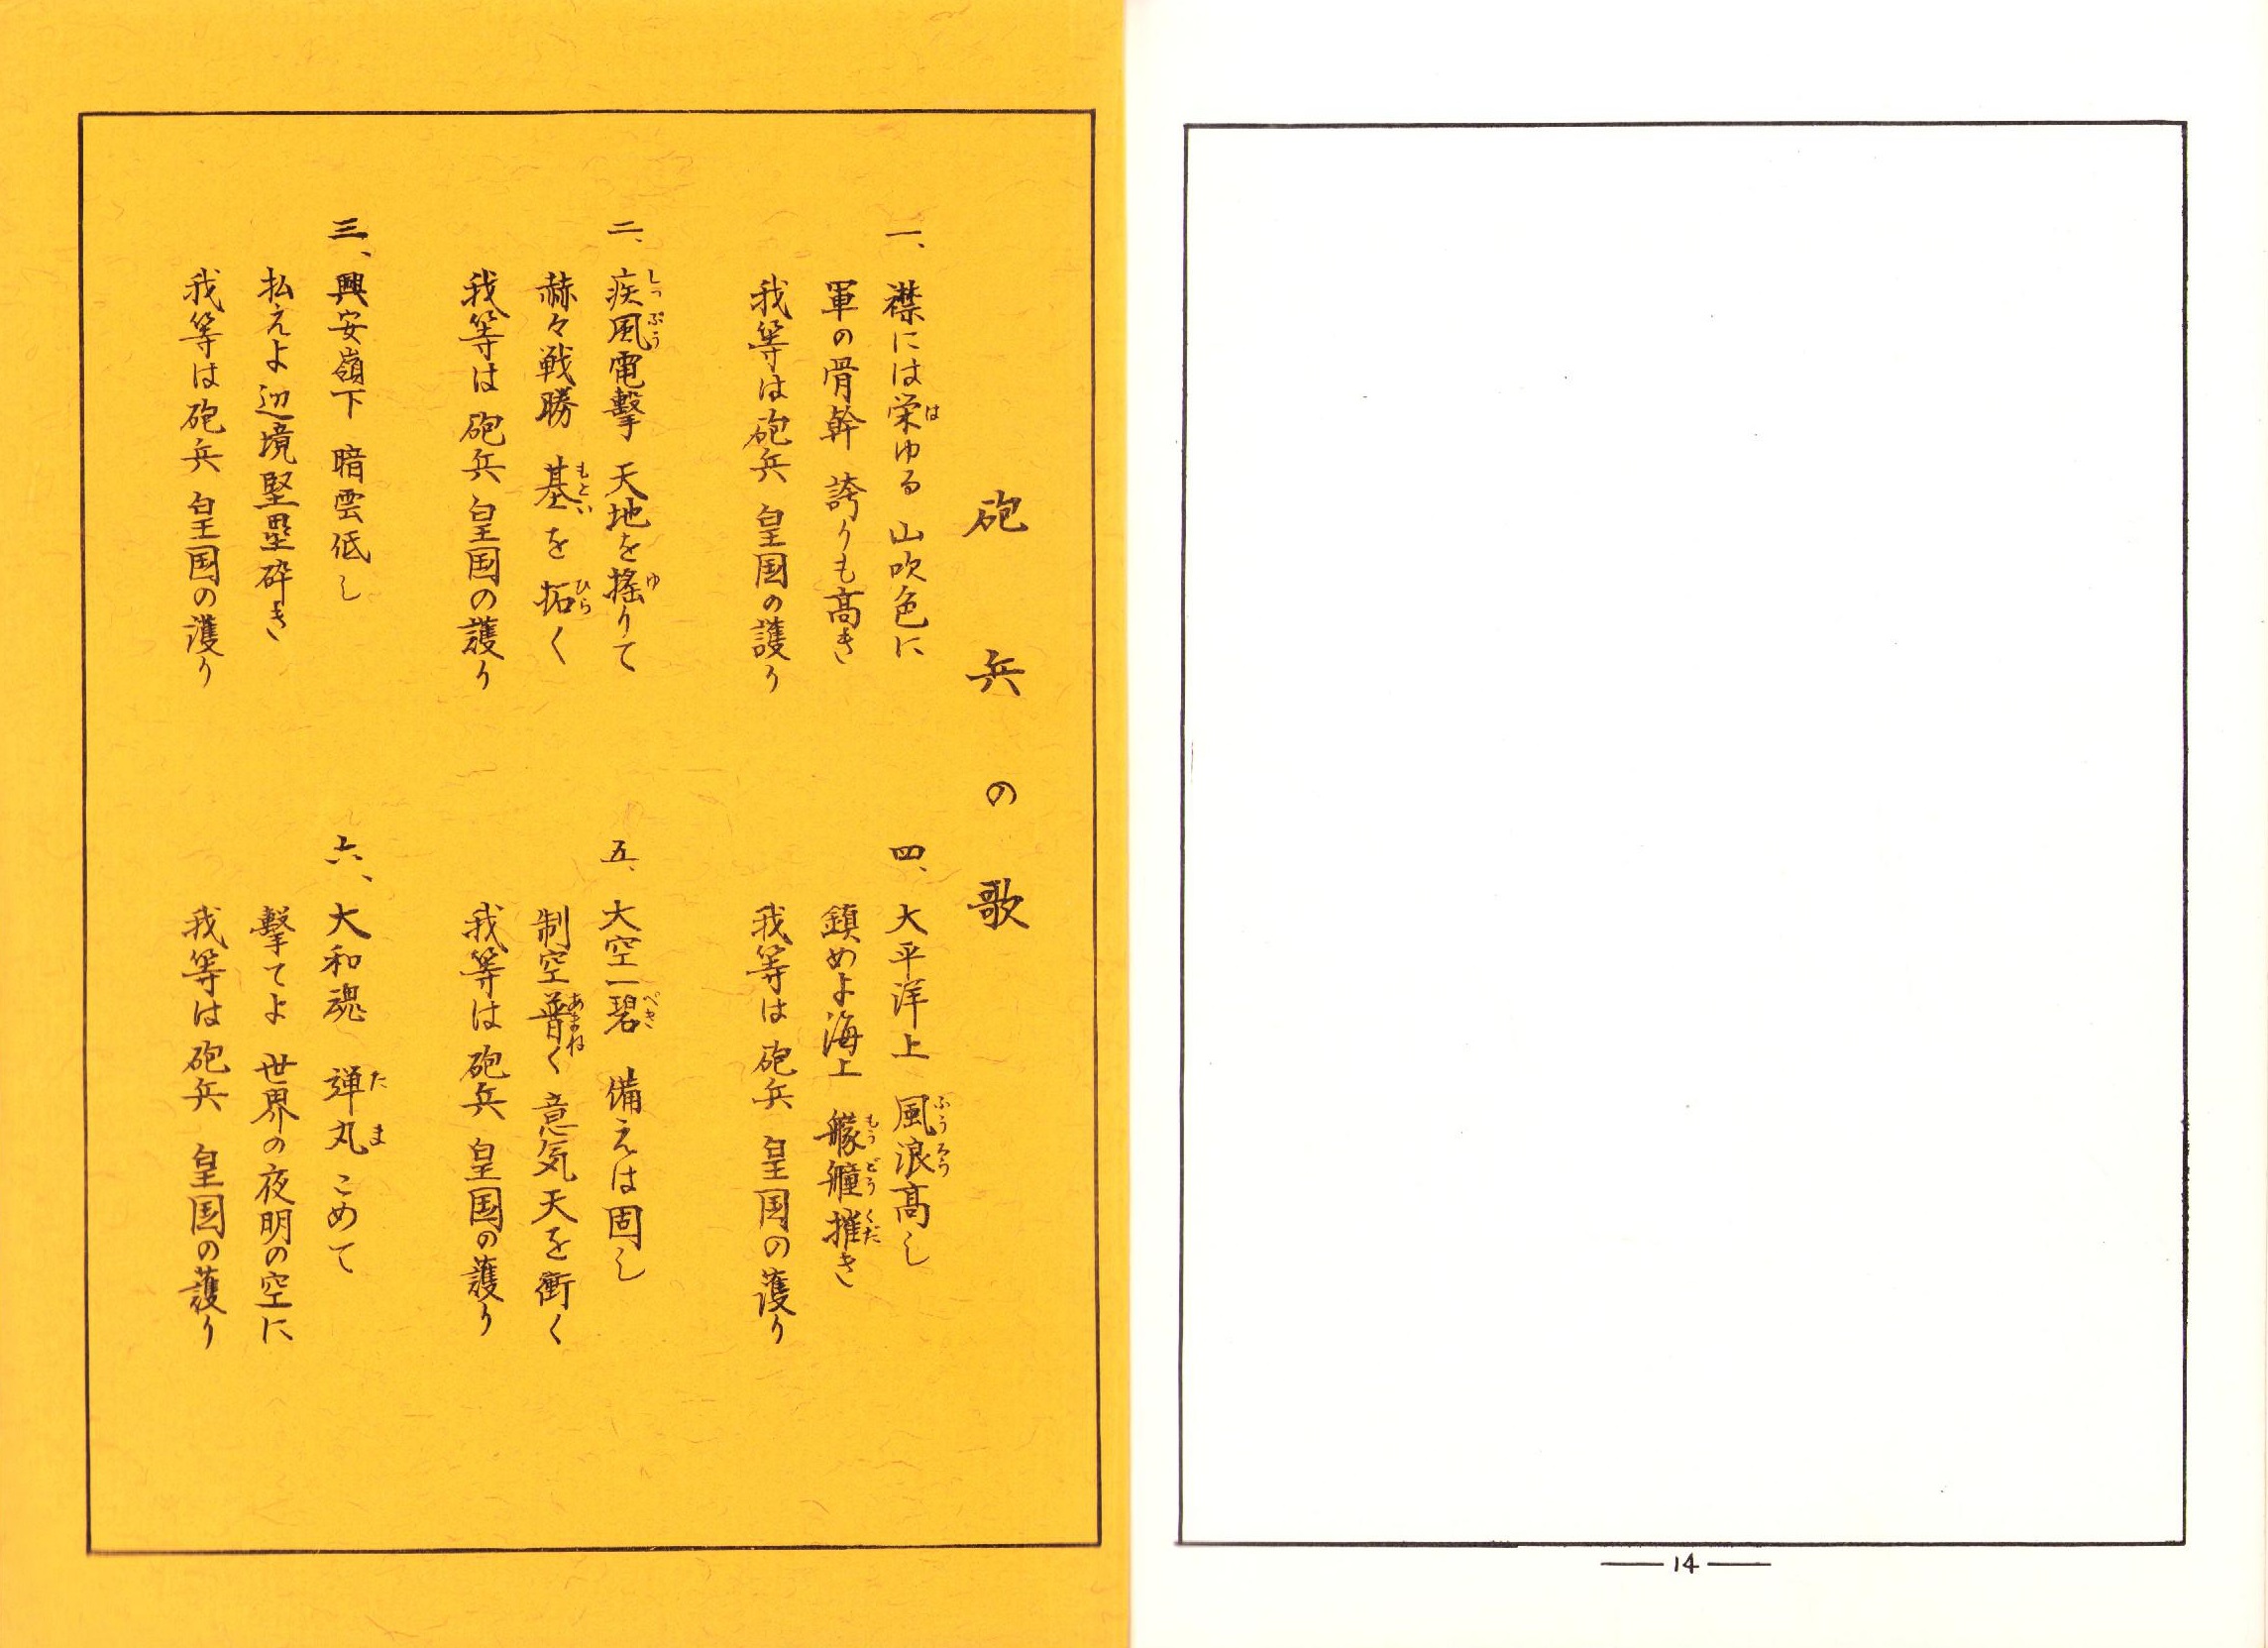 砲兵の歌
一、襟には栄ゆる 山吹色に
軍の骨幹 誇りも高き
我等は砲兵 皇国の護り
二、疾風電撃 天地を搖りて
赫々戦勝 基を拓く
我等は砲兵 皇国の護り
三、興安嶺下 暗雲低し
払えよ辺境堅塁砕き
我等は砲兵 皇国の護り
四、大平洋上 風浪高し
鎮めよ海上 艨艟摧き
我等は砲兵 皇国の護り
五、大空一碧 備えは固し
制空普く 意気天を衝く
我等は砲兵 皇国の護り
六、大和魂 弾丸こめて
撃てよ 世界の夜明の空に
我等は砲兵 皇国の護り
14